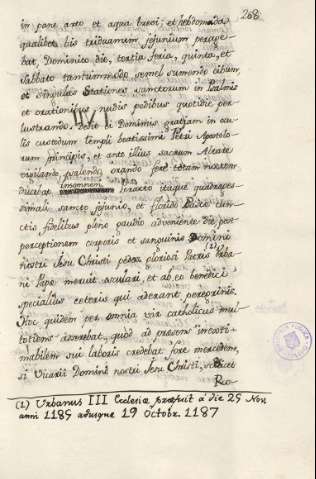 268
in pane arto et aqua brevi; et hebdomada
qualibet bis triduanum jejunium perage-
bat, Dominico die, tertia feria, quinta, et
Sabbato tantummodo semel sumendo cibum,
et singulas Stationes sanctorum in Psalmis
et orationibus nudis pedibus quotidie per
lustrando. Dedit ei Dominus gratiam in ocu
lis custodum templi beatissimi Petri Apostolo-
rum principis, et ante illius sacrum Altare
vigilando psalendo orando fere totam noctem
ducebat insomnem. Peracto itaque quadrages-
simali sancto jejunio, et
ctis fidelibus pleno gaudio adveniente die post
perceptionem corporis et sanguinis Domini
nostri Jesu Christi pedes gloriosi Patris Urba-
ni (1) Pape meruit osculari, et ab eo benedici
specialius ceteris qui aderant peregrinis.
Hoc quidem per omnia vir catholicus mul-
totiens asserebat, quod ad presens inextri-
mabilem sui laboris credebat fore mercedem,
si Vicarii Domini nostri Jesu Christi,
(1) Urbanus III Ecclesiæ præfuit a die 25 Nov
anni 1185 adusque 19 Octobr. 1187